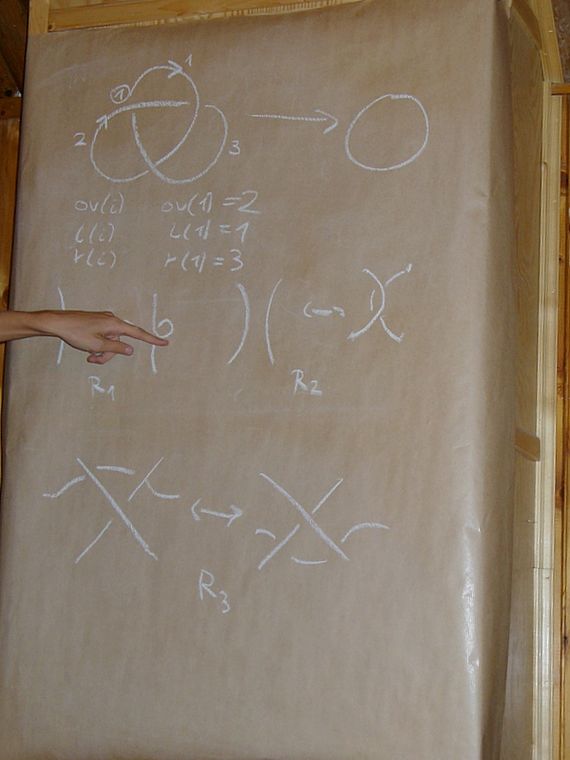 1
①
2
3
ov(i) ov(1) = 2
l(i) l(1) = 1
r(i) r(1) = 3
R1 R2
R3